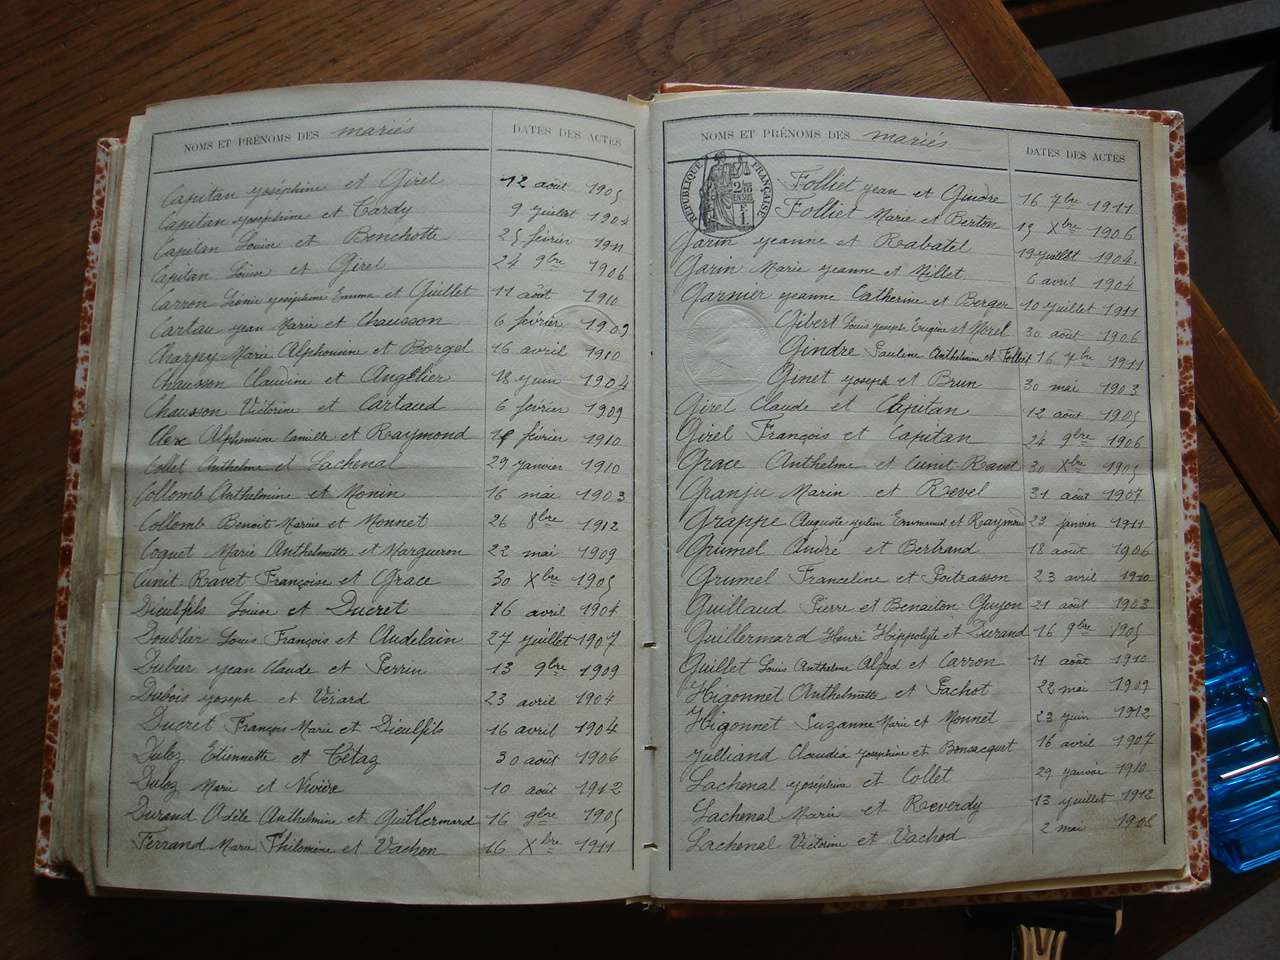 NOMS ET PRÉNOMS DES mariés DATES DES ACTES
Capitan Joséphine et Girel 12 août 1905
Capitan Joséphine et Tardy 9 juillet 1904
Capitan Louise et Benchotte 25 février 1911
Capitan Louise et Girel 24 9bre 1906
Carron Léonie Joséphine Emma et Guillet 11 août 1910
Cartau Jean Marie et Chausson 6 février 1909
Charpy Marie Alphonsine et Borgel 16 avril 1910
Chausson Claudine et Angélier 18 juin 1904
Chausson Victorine et Cartaud 6 février 1909
Clerc Alphonsine Camille et Raymond février 1910
Collet Anthelme et Lachenal 29 janvier 1910
Collomb Anthelmine et Monin 16 mai 1903
Collomb Benoit Marius et Monnet 26 8bre 1912
Coquet Marie Anthelmette et Margueron 22 mai 1909
Cunit Ravet Françoise et Grace 30 Xbre 1905
Dieulfils Louise et Ducret 16 avril 1904
Doublier Louis François et Audelain 27 juillet 1907
Dubur Jean Claude et Perrin 13 9bre 1909
Dubois Joseph et Vérard 23 avril 1904
Ducret François Marie et Dieulfils 16 avril 1904
Dulez Etiennette et Tétaz 30 août 1906
Dulez Marie et Nivière 10 août 1912
Durand Adèle Anthelmine et Guillermard 16 9bre 1905
Ferrand Marie Philomène et Vachon 16 Xbre 1911
NOMS ET PRÉNOMS DES mariés DATES DES ACTES
RÉPUBLIQUE FRANÇAISE
Folliet Jean et Gindre 16 7bre 1911
Folliet Marie et Berton 15 Xbre 1906
Garin Jeanne et Rabatel 19 juillet 1904
Garin Marie Jeanne et Millet 6 avril 1904
Garnier Jeanne Catherine et Berger 10 juillet 1911
Gibert Louis Joseph Eugène et Morel 30 août 1906
Gindre Pauline Anthelmine et Folliet 16 7bre 1911
Ginet Joseph et Brun 30 mai 1903
Girel Claude et Capitan 12 août 1905
Girel François et Capitan 24 9bre 1906
Grace Anthelme et Cunit Ravet 30 Xbre 1905
Granju Marin et Revel 31 août 1907
Grappe Auguste Justin Emmanuel et Raymond 23 janvier 1911
Grumel André et Bertrand 18 août 1906
Grumel Franceline et Poitrasson 23 avril 1910
Guillaud Pierre et Benaiton Guyon 21 août 1903
Guillermard Henri Hippolyte et Durand 16 9bre 1905
Guillet Louis Anthelme Alfred et Carron 11 août 1910
Higonnet Anthelmette et Pachot 22 mai 1909
Higonnet Suzanne Marie et Monnet 23 juin 1912
Julliand Claudia Joséphine et Bonsacquet 16 avril 1907
Lachenal Joséphine et Collet 29 janvier 1910
Lachenal Marie et Reverdy 13 juillet 1912
Lachenal Victorine et Vachod 2 mai 1908